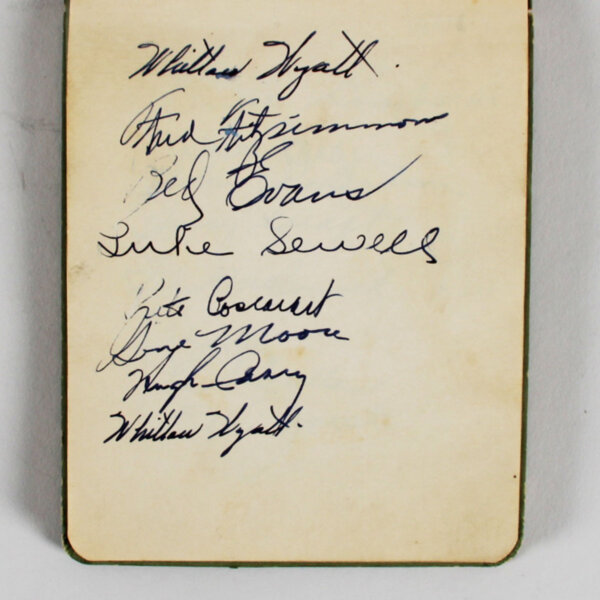 Whitlow Wyatt.
Fred Fitzsimmons
Red Evans
Luke Sewell
Pete Coscarart
Gene Moore
Hugh Casey
Whitlow Wyatt.